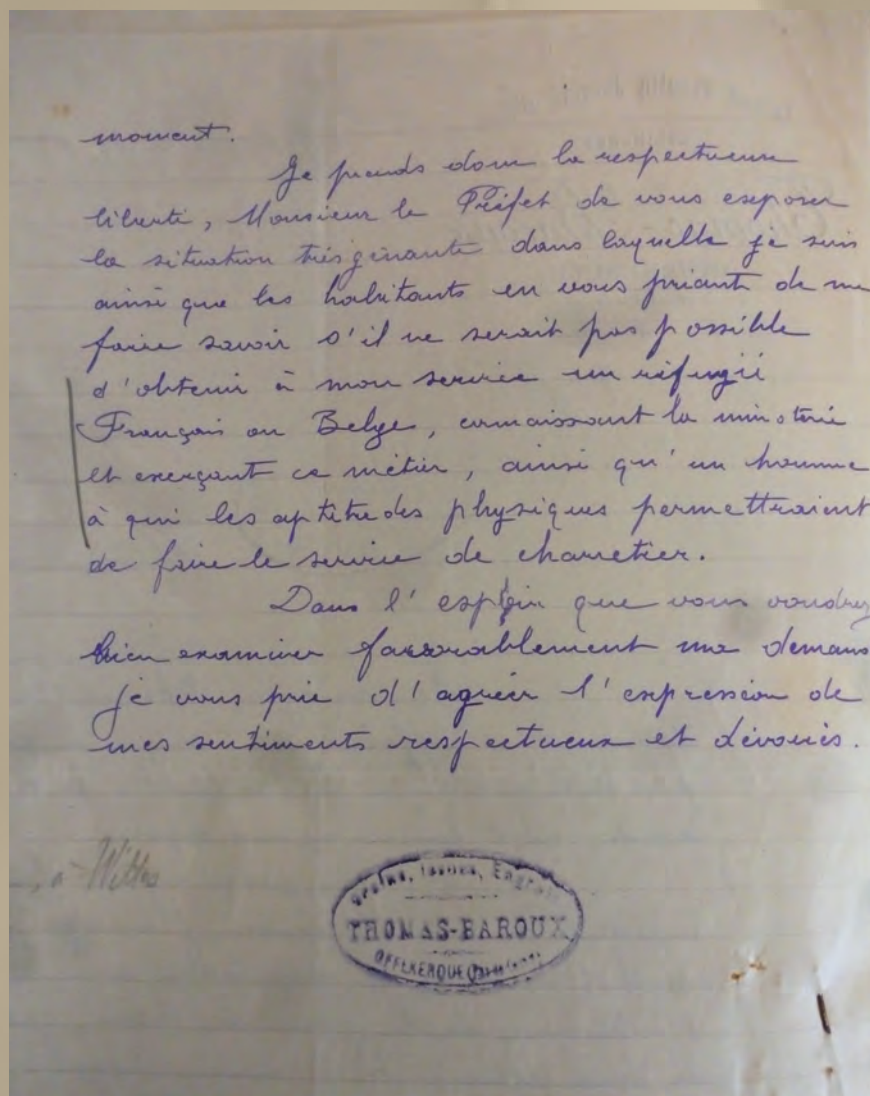 moment.
Je prends donc la respectueuse
liberté, Monsieur le Préfet de vous exposer
la situation très gênante dans laquelle je suis
ainsi que les habitants en vous priant de me
faire savoir s'il ne serait pas possible
d'obtenir à mon service un réfugié
Français ou Belge, connaissant la minoterie
et exerçant ce métier, ainsi qu'un homme
à qui les aptitudes physiques permettraient
de faire le service de charretier.
Dans l'espoir que vous voudrez
bien examiner favorablement ma demande
je vous prie d'agréer l'expression de
mes sentiments respectueux et dévoués.
à Wittes
Grains, Issues, Engrais
THOMAS-BAROUX
OFFEKERQUE (Pas-de-Calais)